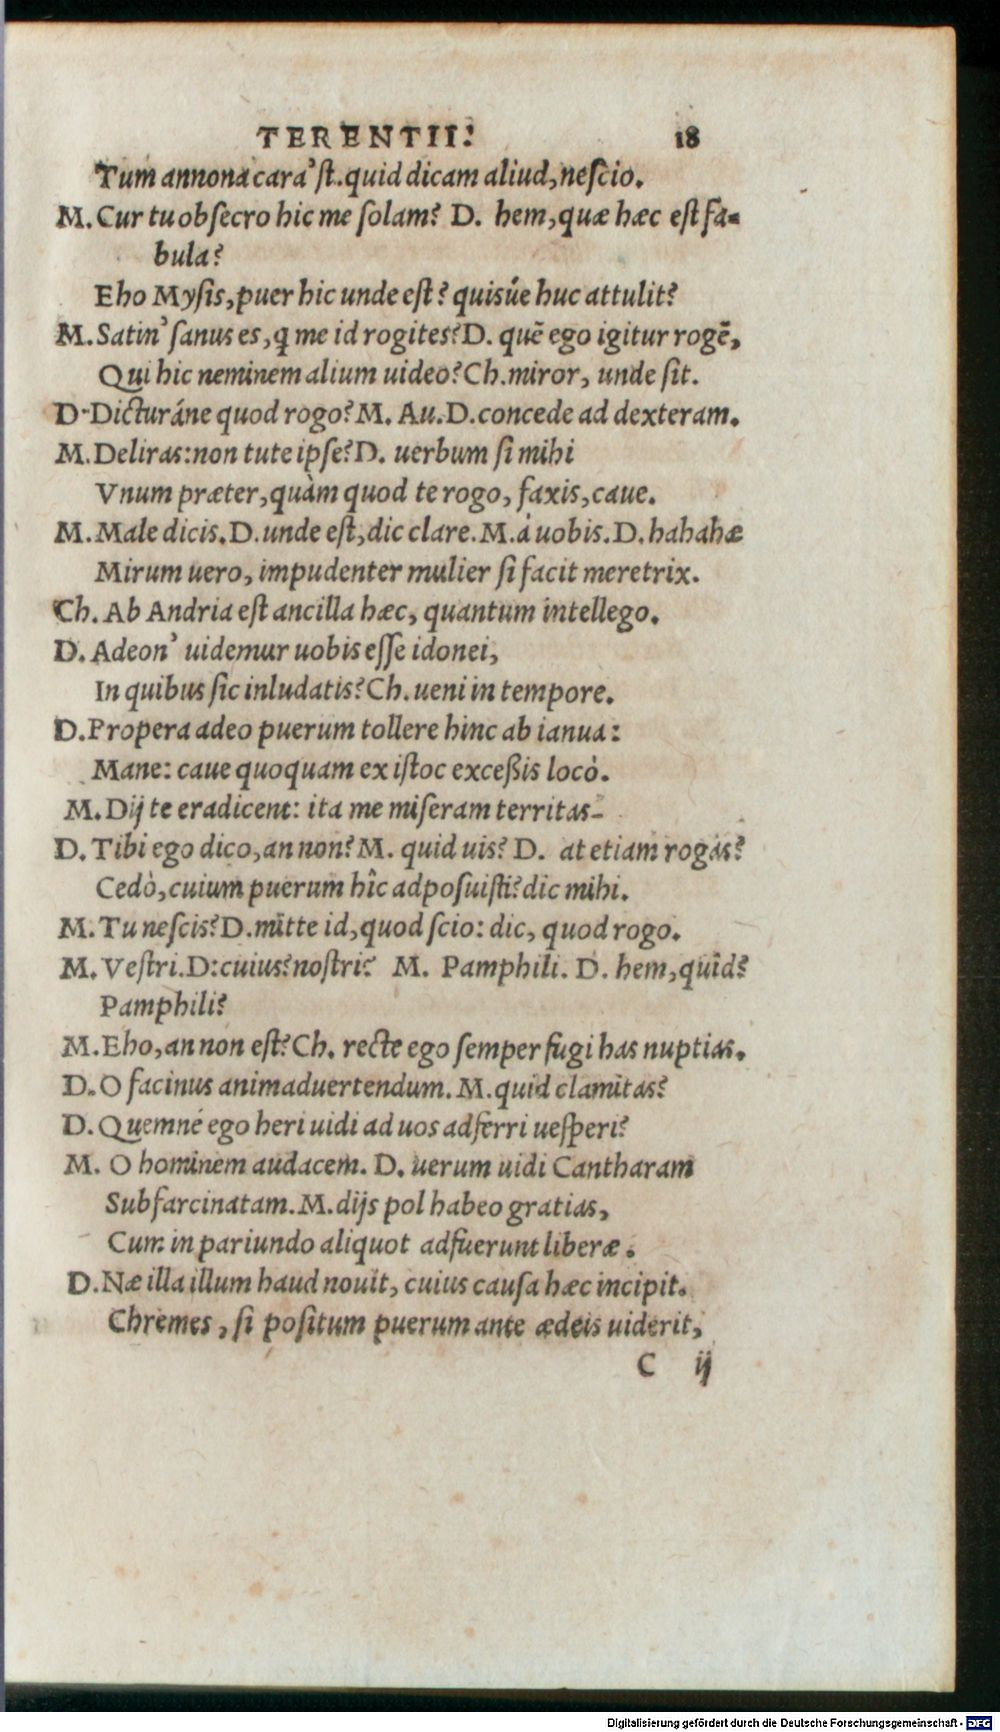 TERENTII. 18
Tum annona cara'st. quid dicam aliud, nescio.
M. Cur tu obsecro hic me solam? D. hem, quæ hæc est fa-
bula?
Eho Mysis, puer hic unde est? quisúe huc attulit?
M. Satin' sanus es, q me id rogites? D. quē ego igitur rogē,
Qui hic neminem alium uideo? Ch. miror, unde sit.
D. Dicturáne quod rogo? M. Au. D. concede ad dexteram.
M. Deliras: non tute ipse? D. uerbum si mihi
Vnum præter, quàm quod te rogo, faxis, caue.
M. Male dicis. D. unde est, dic clare. M. à uobis. D. hahahæ
Mirum uero, impudenter mulier si facit meretrix.
Ch. Ab Andria est ancilla hæc, quantum intellego.
D. Adeon' uidemur uobis esse idonei,
In quibus sic inludatis? Ch. ueni in tempore.
D. Propera adeo puerum tollere hinc ab ianua:
Mane: caue quoquam ex istoc exceßis locò.
M. Dij te eradicent: ita me miseram territas-
D. Tibi ego dico, an non? M. quid uis? D. at etiam rogas?
Cedò, cuium puerum hîc adposuisti? dic mihi.
M. Tu nescis? D. mitte id, quod scio: dic, quod rogo.
M. Vestri. D: cuius? nostri? M. Pamphili. D. hem, quid?
Pamphili?
M. Eho, an non est? Ch. recte ego semper fugi has nuptias.
D. O facinus animaduertendum. M. quid clamitas?
D. Quemné ego heri uidi ad uos adferri uesperi?
M. O hominem audacem. D. uerum uidi Cantharam
Subfarcinatam. M. dijs pol habeo gratias,
Cum in pariundo aliquot adfuerunt liberæ.
D. Næ illa illum haud nouit, cuius causa hæc incipit.
Chremes, si positum puerum ante ædeis uiderit,
C ij
Digitalisierung gefördert durch die Deutsche Forschungsgemeinschaft - DFG